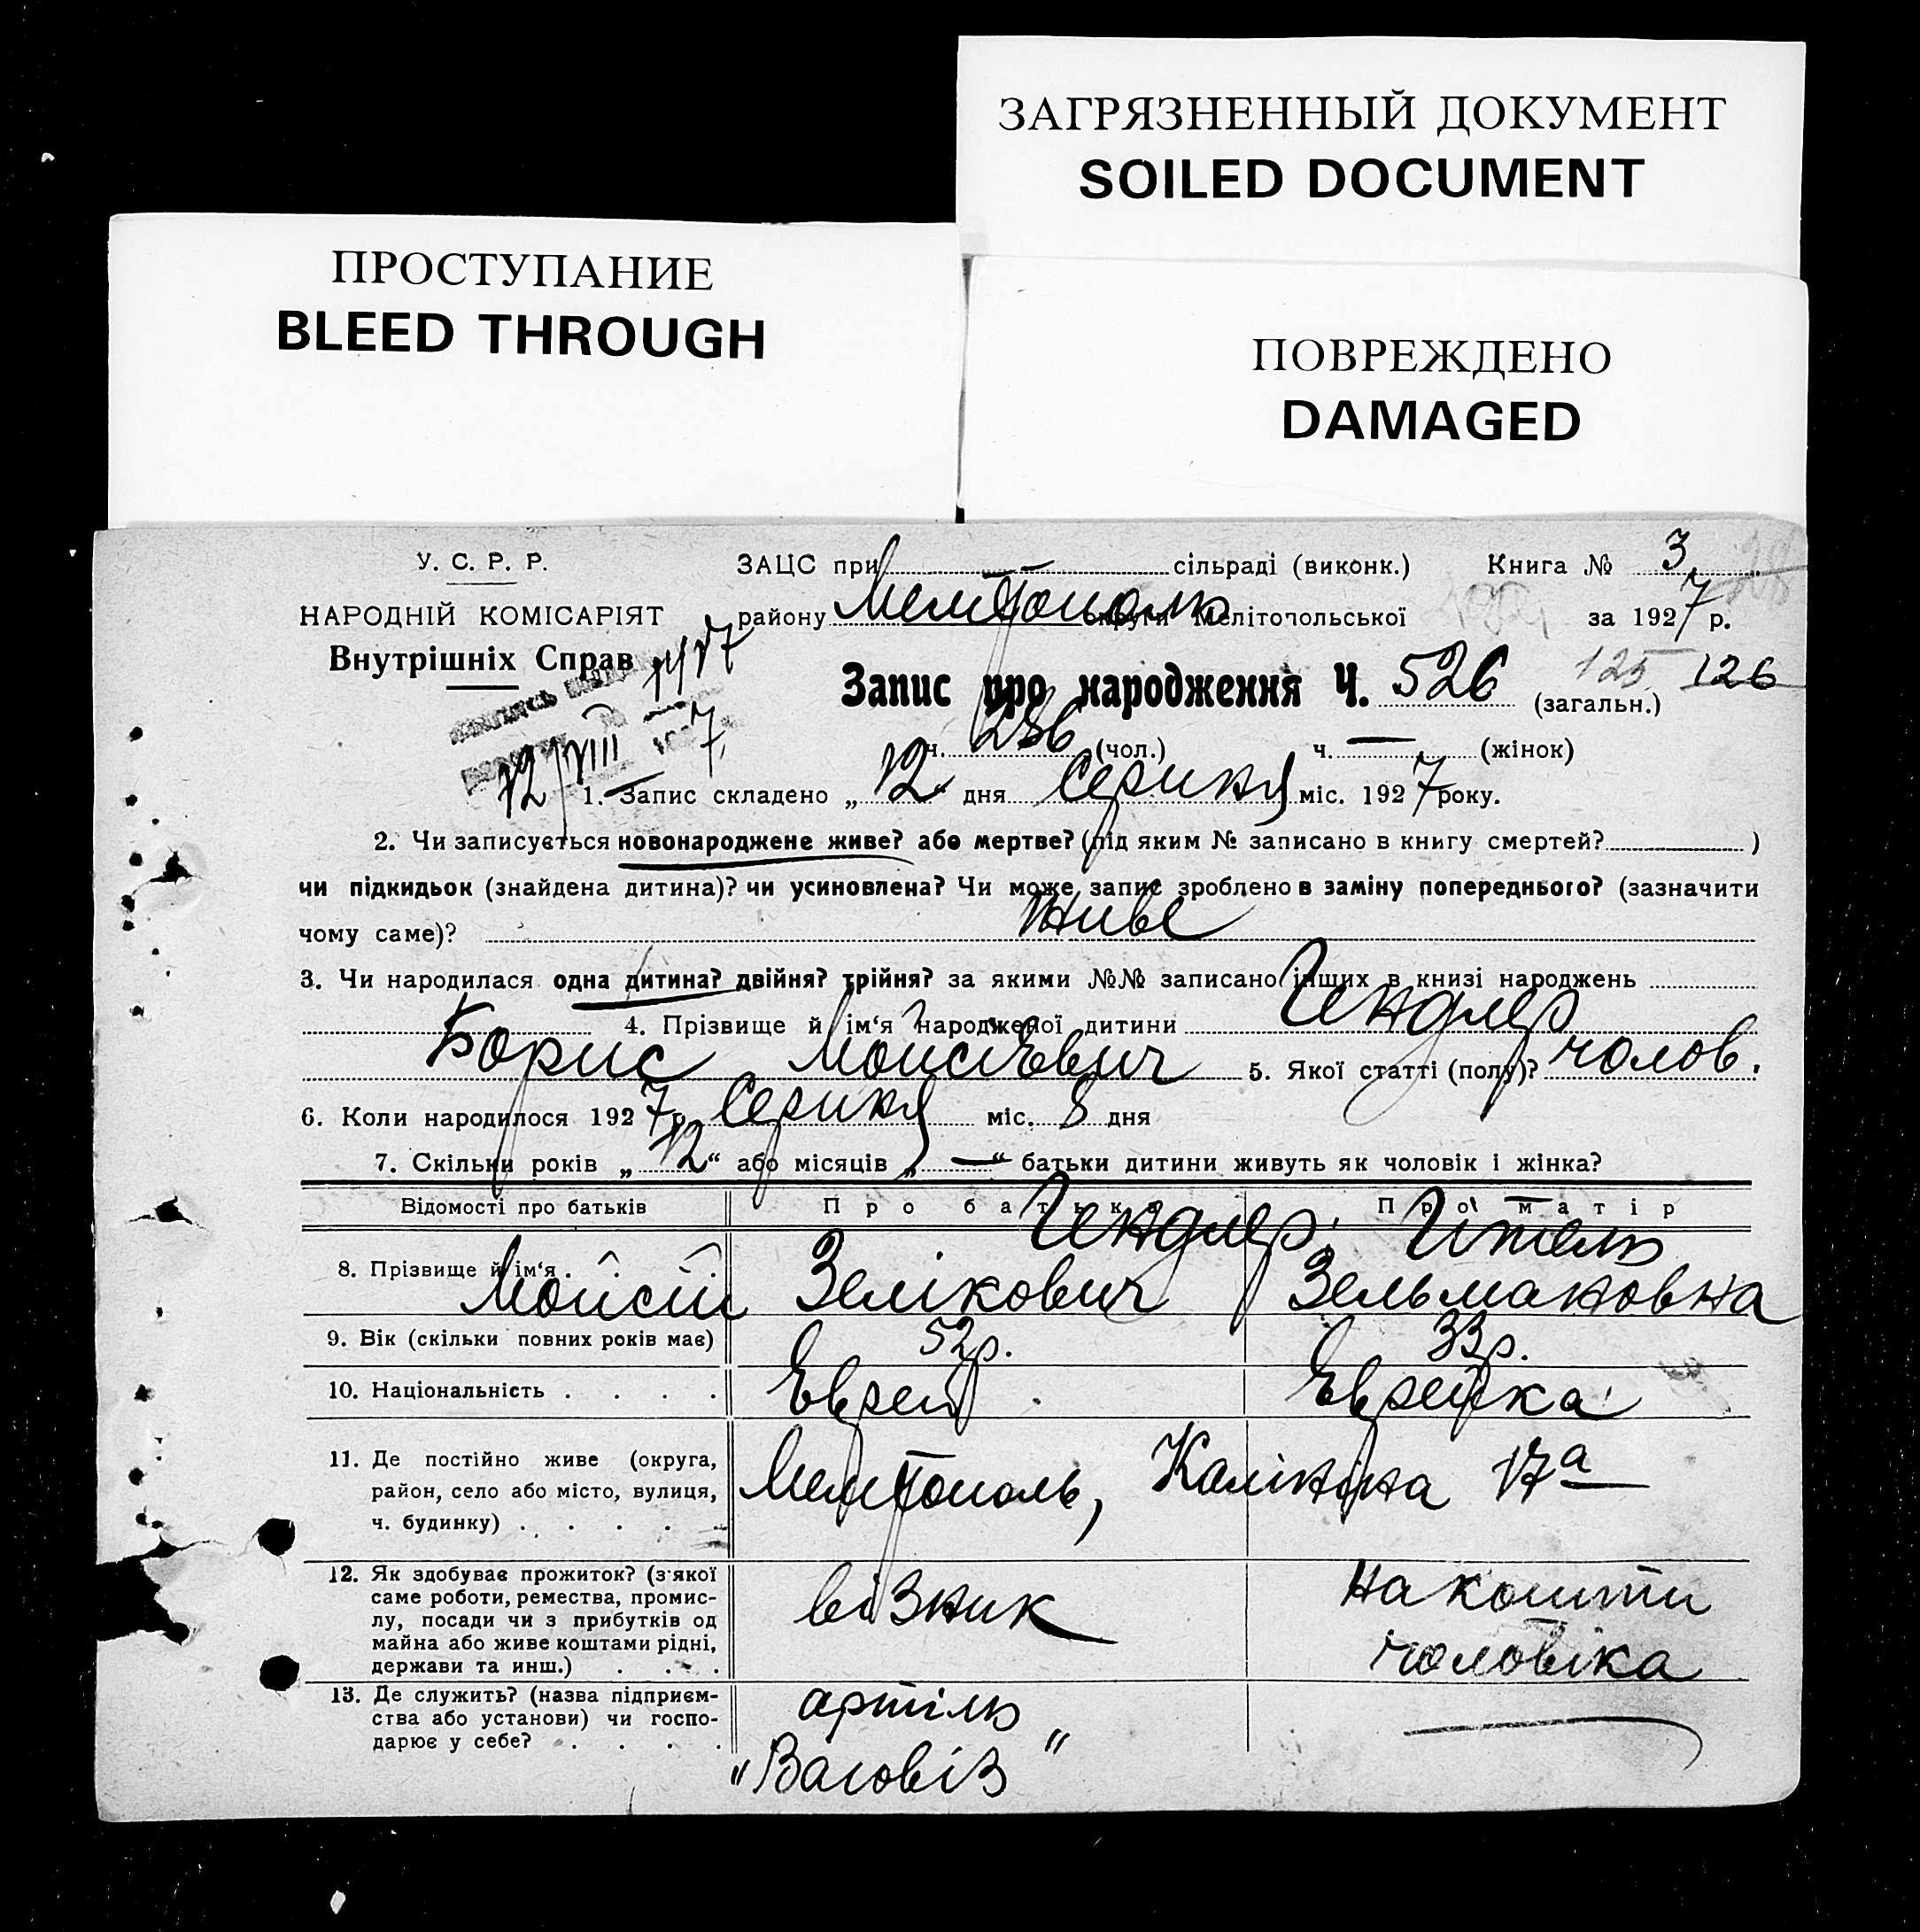 ЗАГРЯЗНЕННЫЙ ДОКУМЕНТ
SOILED DOCUMENT
ПРОСТУПАНИЕ
BLEED THROUGH
ПОВРЕЖДЕНО
DAMAGED
У. С. Р. Р.
НАРОДНІЙ КОМІСАРІЯТ
Внутрішніх Справ
ЗАЦС при сільраді (виконк.) Книга № 3
району Мелітополь округи Мелітопольської за 1927 р.
Запис про народження Ч. 526 (загальн.) 125 126
ч. 286 (чол.) ч. — (жінок)
12/VIII 7
1. Запис складено „12 дня Серпня міс. 1927 року.
2. Чи записується новонароджене живе? або мертве? (під яким № записано в книгу смертей? )
чи підкидьок (знайдена дитина)? чи усиновлена? Чи може запис зроблено в заміну попереднього? (зазначити
чому саме)? Живе
3. Чи народилася одна дитина? двійня? трійня? за якими №№ записано інших в книзі народжень
4. Прізвище й ім‘я народженої дитини Гендлер
Борис Мойсієвич 5. Якої статті (полу)? чолов.
6. Коли народилося 1927 р. Серпня міс. 8 дня
7. Скільки років „12“ або місяців „—“ батьки дитини живуть як чоловік і жінка?
Відомості про батьків Про батька Про матір
8. Прізвище й ім‘я . Гендлер Мойсій Зелікович Зельмановна
9. Вік (скільки повних років має) 52 р. 33 р.
10. Національність . . . . Еврей Еврейка
11. Де постійно живе (округа,
район, село або місто, вулиця,
ч. будинку) . . . . .
Мелітополь, Калініна 17а
12. Як здобуває прожиток? (з якої
саме роботи, ремества, промис-
лу, посади чи з прибутків од
майна або живе коштами рідні,
держави та инш.) . . .
візник
на кошти
чоловіка
13. Де служить? (назва підприєм-
ства або установи) чи госпо-
дарює у себе? . . . .
артіль
„Ваговіз"